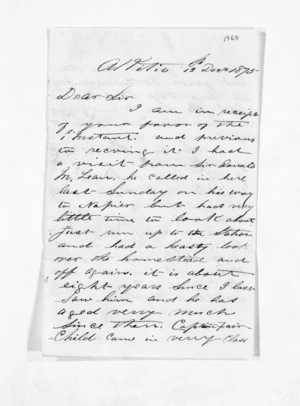 1969
12 Decr 1875
Dear Sir
I am in receipt
of your favor of the
1st Instant. and previous
to recving it I had
a visit from Sir Donald
McLean, he called in here
last Sunday on his way
to Napier but had very
little time to look about
Just run up to the Station
and had a hasty look
over the homestead and
off again. it is about
eight years since I have
saw him and he has
aged verry much
Since then. Capt Fair
Child came in verry close